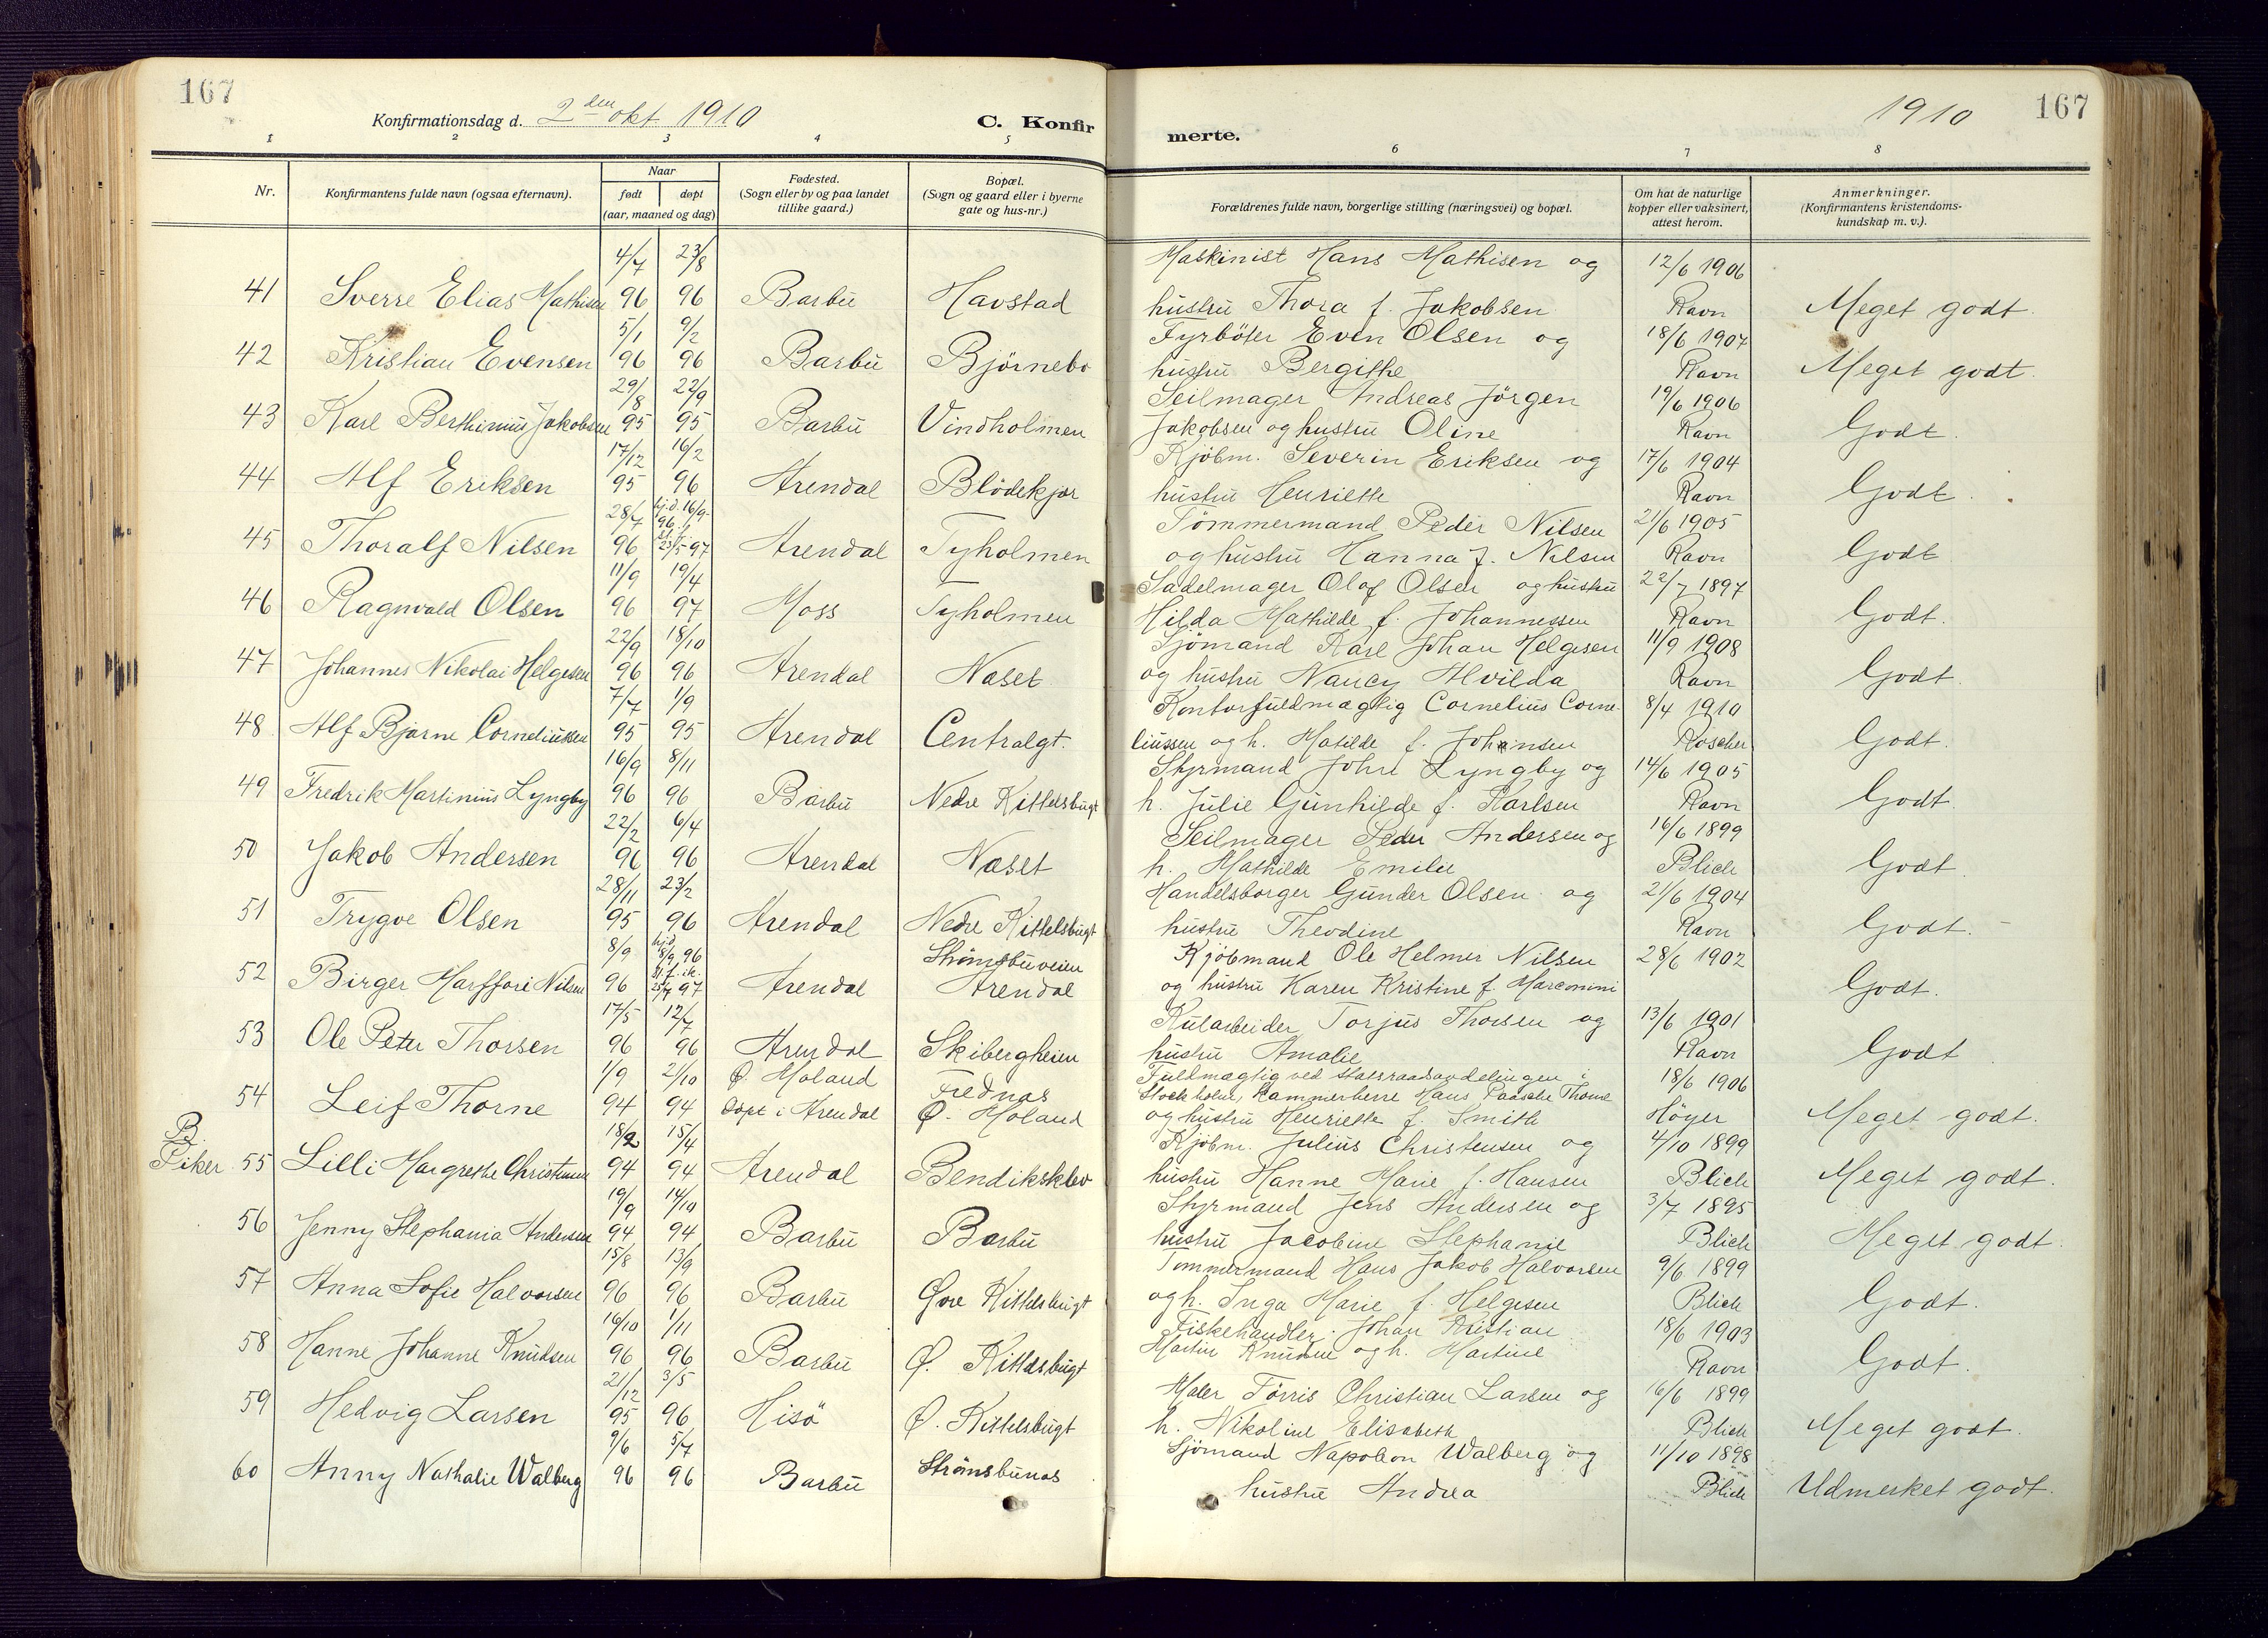 167
Konfirmationsdag d. 2den okt 1910
C. Konfir
merte.
1910
167
1 2 3 4 5 6 7 8
Nr.
Konfirmantens fulde navn (ogsaa efternavn).
Naar
født døpt
(aar, maaned og dag)
Fødested.
(Sogn eller by og paa landet
tillike gaard.)
Bopæl.
(Sogn og gaard eller i byerne
gate og hus-nr.)
Forældrenes fulde navn, borgerlige stilling (næringsvei) og bopæl.
Om hat de naturlige
kopper eller vaksinert,
attest herom.
Anmerkninger.
(Konfirmantens kristendoms-
kundskap m. v.).
4/7 23/8 Maskinist Hans Mathisen og 12/6 1906
41 Sverre Elias Mathisen 96 96 Barbu Havstad hustru Thora f. Jakobsen Ravn Meget godt.
5/1 9/2 Fyrböter Even Olsen og 18/6 1907
42 Kristian Evensen 96 96 Barbu Björnebo hustru Bergithe Ravn Meget godt.
29/8 22/9 Seilmager Andreas Jörgen 19/6 1906
43 Karl Berthinius Jakobsen 95 95 Barbu Vindholmen Jakobsen og hustru Oline Ravn Godt.
17/12 16/2 Kjöbm. Severin Eriksen og 17/6 1904
44 Alf Eriksen 95 96 Arendal Blödekjær hustru Henriette Ravn Godt.
28/7 hj.d. 16/9 96 Tömmermand Peder Nilsen 21/6 1905
45 Thoralf Nilsen 96 23/5 97 Arendal Tyholmen og hustru Hanna f. Nilsen Ravn Godt
11/9 19/4 Sadelmager Olof Olsen og hustru 22/7 1897
46 Ragnvald Olsen 96 97 Moss Tyholmen Hilda Mathilde f. Johannessen Ravn Godt.
22/9 18/10 Sjömand Karl Johan Helgesen 11/9 1908
47 Johannes Nikolai Helgesen 96 96 Arendal Næset og hustru Nancy Alvilda Ravn Godt.
7/7 1/9 Kontorfuldmægtig Cornelius Corne- 8/4 1910
48 Alf Bjarne Corneliussen 95 95 Arendal Centralgt. liussen og h. Matilde f. Johansen Roscher Godt.
16/9 8/11 Styrmand John Lyngby og 14/6 1905
49 Fredrik Martinius Lyngby 96 96 Barbu Nedre Kittelsbugt h. Julie Gunhilde f. Karlsen Ravn Godt.
22/2 6/4 Seilmager Peder Andersen og 16/6 1899
50 Jakob Andersen 96 96 Arendal Næset h. Mathilde Emilie Blich Godt.
28/11 23/2 Handelsborger Gunder Olsen og 21/6 1904
51 Trygve Olsen 95 96 Arendal Nedre Kittelsbugt hustru Theodine Ravn Godt.
8/9 hj.d. 18/9 96 Strömsbuveien Kjöbmand Ole Helmer Nilsen 28/6 1902
52 Birger Nilsen 96 25/7 97 Arendal Arendal og hustru Karen Kristine f. Marconini Godt.
17/5 12/7 Kularbeider Torjus Thorsen og 13/6 1901
53 Ole Peter Thorsen 96 96 Arendal Skibergheien hustru Amalie Ravn Godt
1/9 21/10 Ø. Moland Frednæs Fuldmægtig ved statsraadsavdelingen i 18/6 1906
54 Leif Thorne 94 94 Döpt i Arendal Ø. Moland Stockholm, Kammerherre Hans Paasche Thorne
og hustru Henriette f. Smith Höyer Meget godt.
B.
Piker
18/2 15/4 Kjöbm. Julius Christensen og 4/10 1899
55 Lilli Margrethe Christensen 94 94 Arendal Bendiksklev hustru Hanne Marie f. Hansen Blich Meget godt.
19/9 14/10 Styrmand Jens Andersen og 3/7 1895
56 Jenny Stephania Andersen 94 94 Barbu Barbu hustru Jacobine Stephanie Blich Meget godt.
15/8 13/9 Tömmermand Hans Jakob Halvorsen 9/6 1899
57 Anna Sofie Halvorsen 96 96 Barbu Øvre Kittelsbugt og h. Inga Marie f. Helgesen Blich Godt.
16/10 1/11 Fiskehandler Johan Kristian 18/6 1903
58 Hanne Johanne Knudsen 96 96 Barbu Ø. Kittelsbugt Martin Knudsen og h. Martine Ravn Godt.
21/12 3/5 Maler Törris Christian Larsen og 16/6 1899
59 Hedvig Larsen 95 96 Hisö Ø. Kittelsbugt h. Nikoline Elisabeth Blich Meget godt.
9/6 5/7 Sjömand Napoleon Walberg og 11/10 1898
60 Anny Nathalie Walberg 96 96 Barbu Strömsbunæs hustru Andrea Blich Udmerket godt.